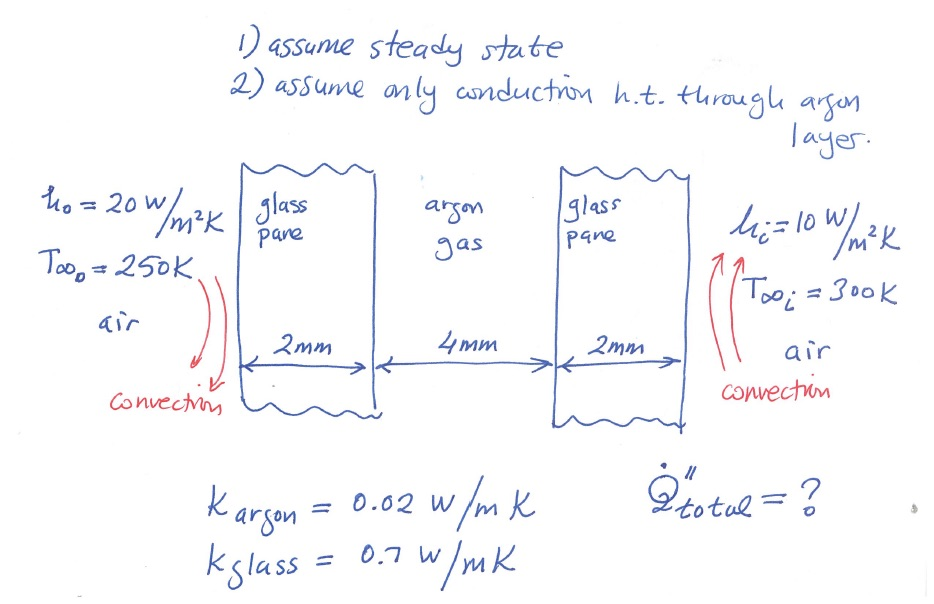 1) assume steady state
2) assume only conduction h.t. through argon
layer.
h₀ = 20 W/m²K
T∞₀ = 250K
air
convection
glass
pane
2mm
argon
gas
4mm
glass
pane
2mm
hᵢ = 10 W/m²K
T∞ᵢ = 300K
air
convection
K argon = 0.02 W/mK
K glass = 0.7 W/mK
Q̇″total = ?